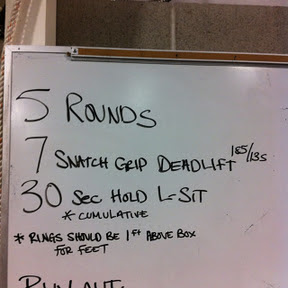 5 ROUNDS
7 SNATCH GRIP DEADLIFT 185/135
30 SEC HOLD L-SIT
* CUMULATIVE
* RINGS SHOULD BE 1 FT ABOVE BOX
FOR FEET